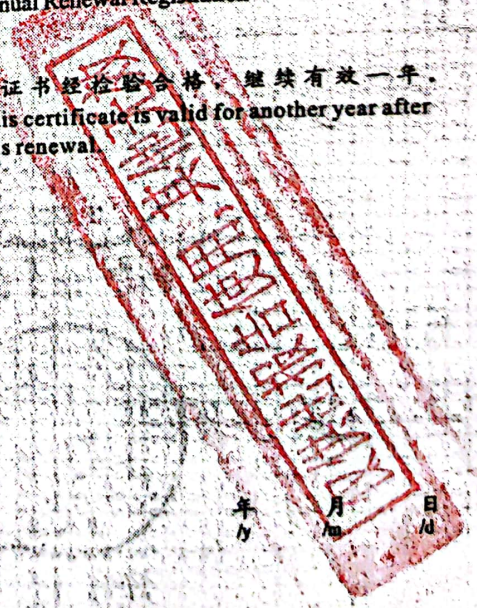 nual Renewal Registration
证书经检验合格，继续有效一年。
is certificate is valid for another year after
s renewal.
报告使用，其他无效
年 月 日
/y /m /d